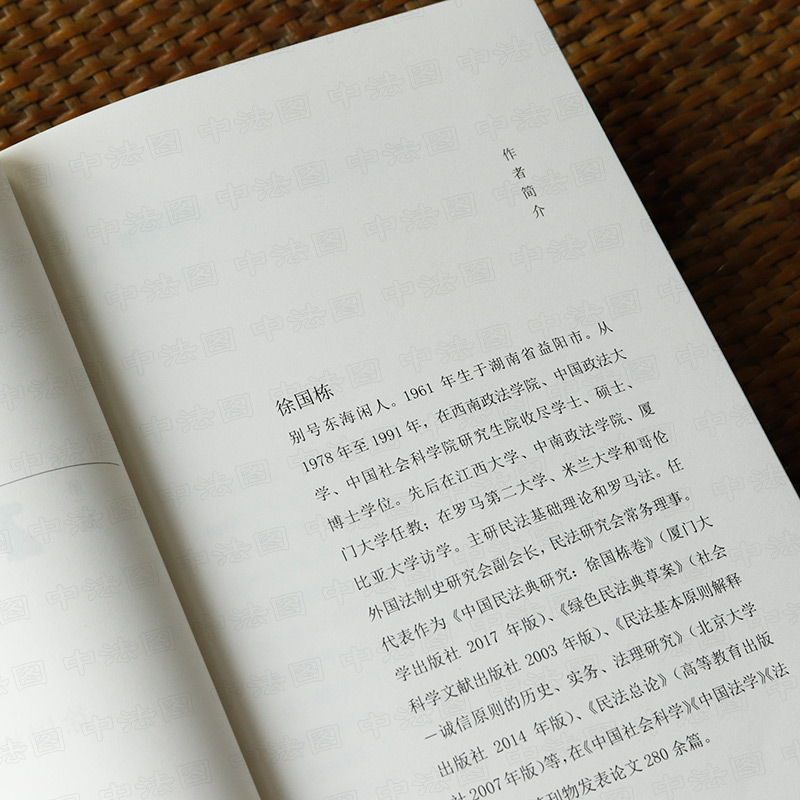 作者简介
徐国栋
别号东海闲人。1961 年生于湖南省益阳市。从
1978 年至 1991 年，在西南政法学院、中国政法大
学、中国社会科学院研究生院收尽学士、硕士、
博士学位。先后在江西大学、中南政法学院、厦
门大学任教；在罗马第二大学、米兰大学和哥伦
比亚大学访学。主研民法基础理论和罗马法。任
外国法制史研究会副会长，民法研究会常务理事。
代表作为《中国民法典研究：徐国栋卷》（厦门大
学出版社 2017 年版）、《绿色民法典草案》（社会
科学文献出版社 2003 年版）、《民法基本原则解释
—诚信原则的历史、实务、法理研究》（北京大学
出版社 2014 年版）、《民法总论》（高等教育出版
社2007年版）等，在《中国社会科学》《中国法学》《法
刊物发表论文 280 余篇。
中法图